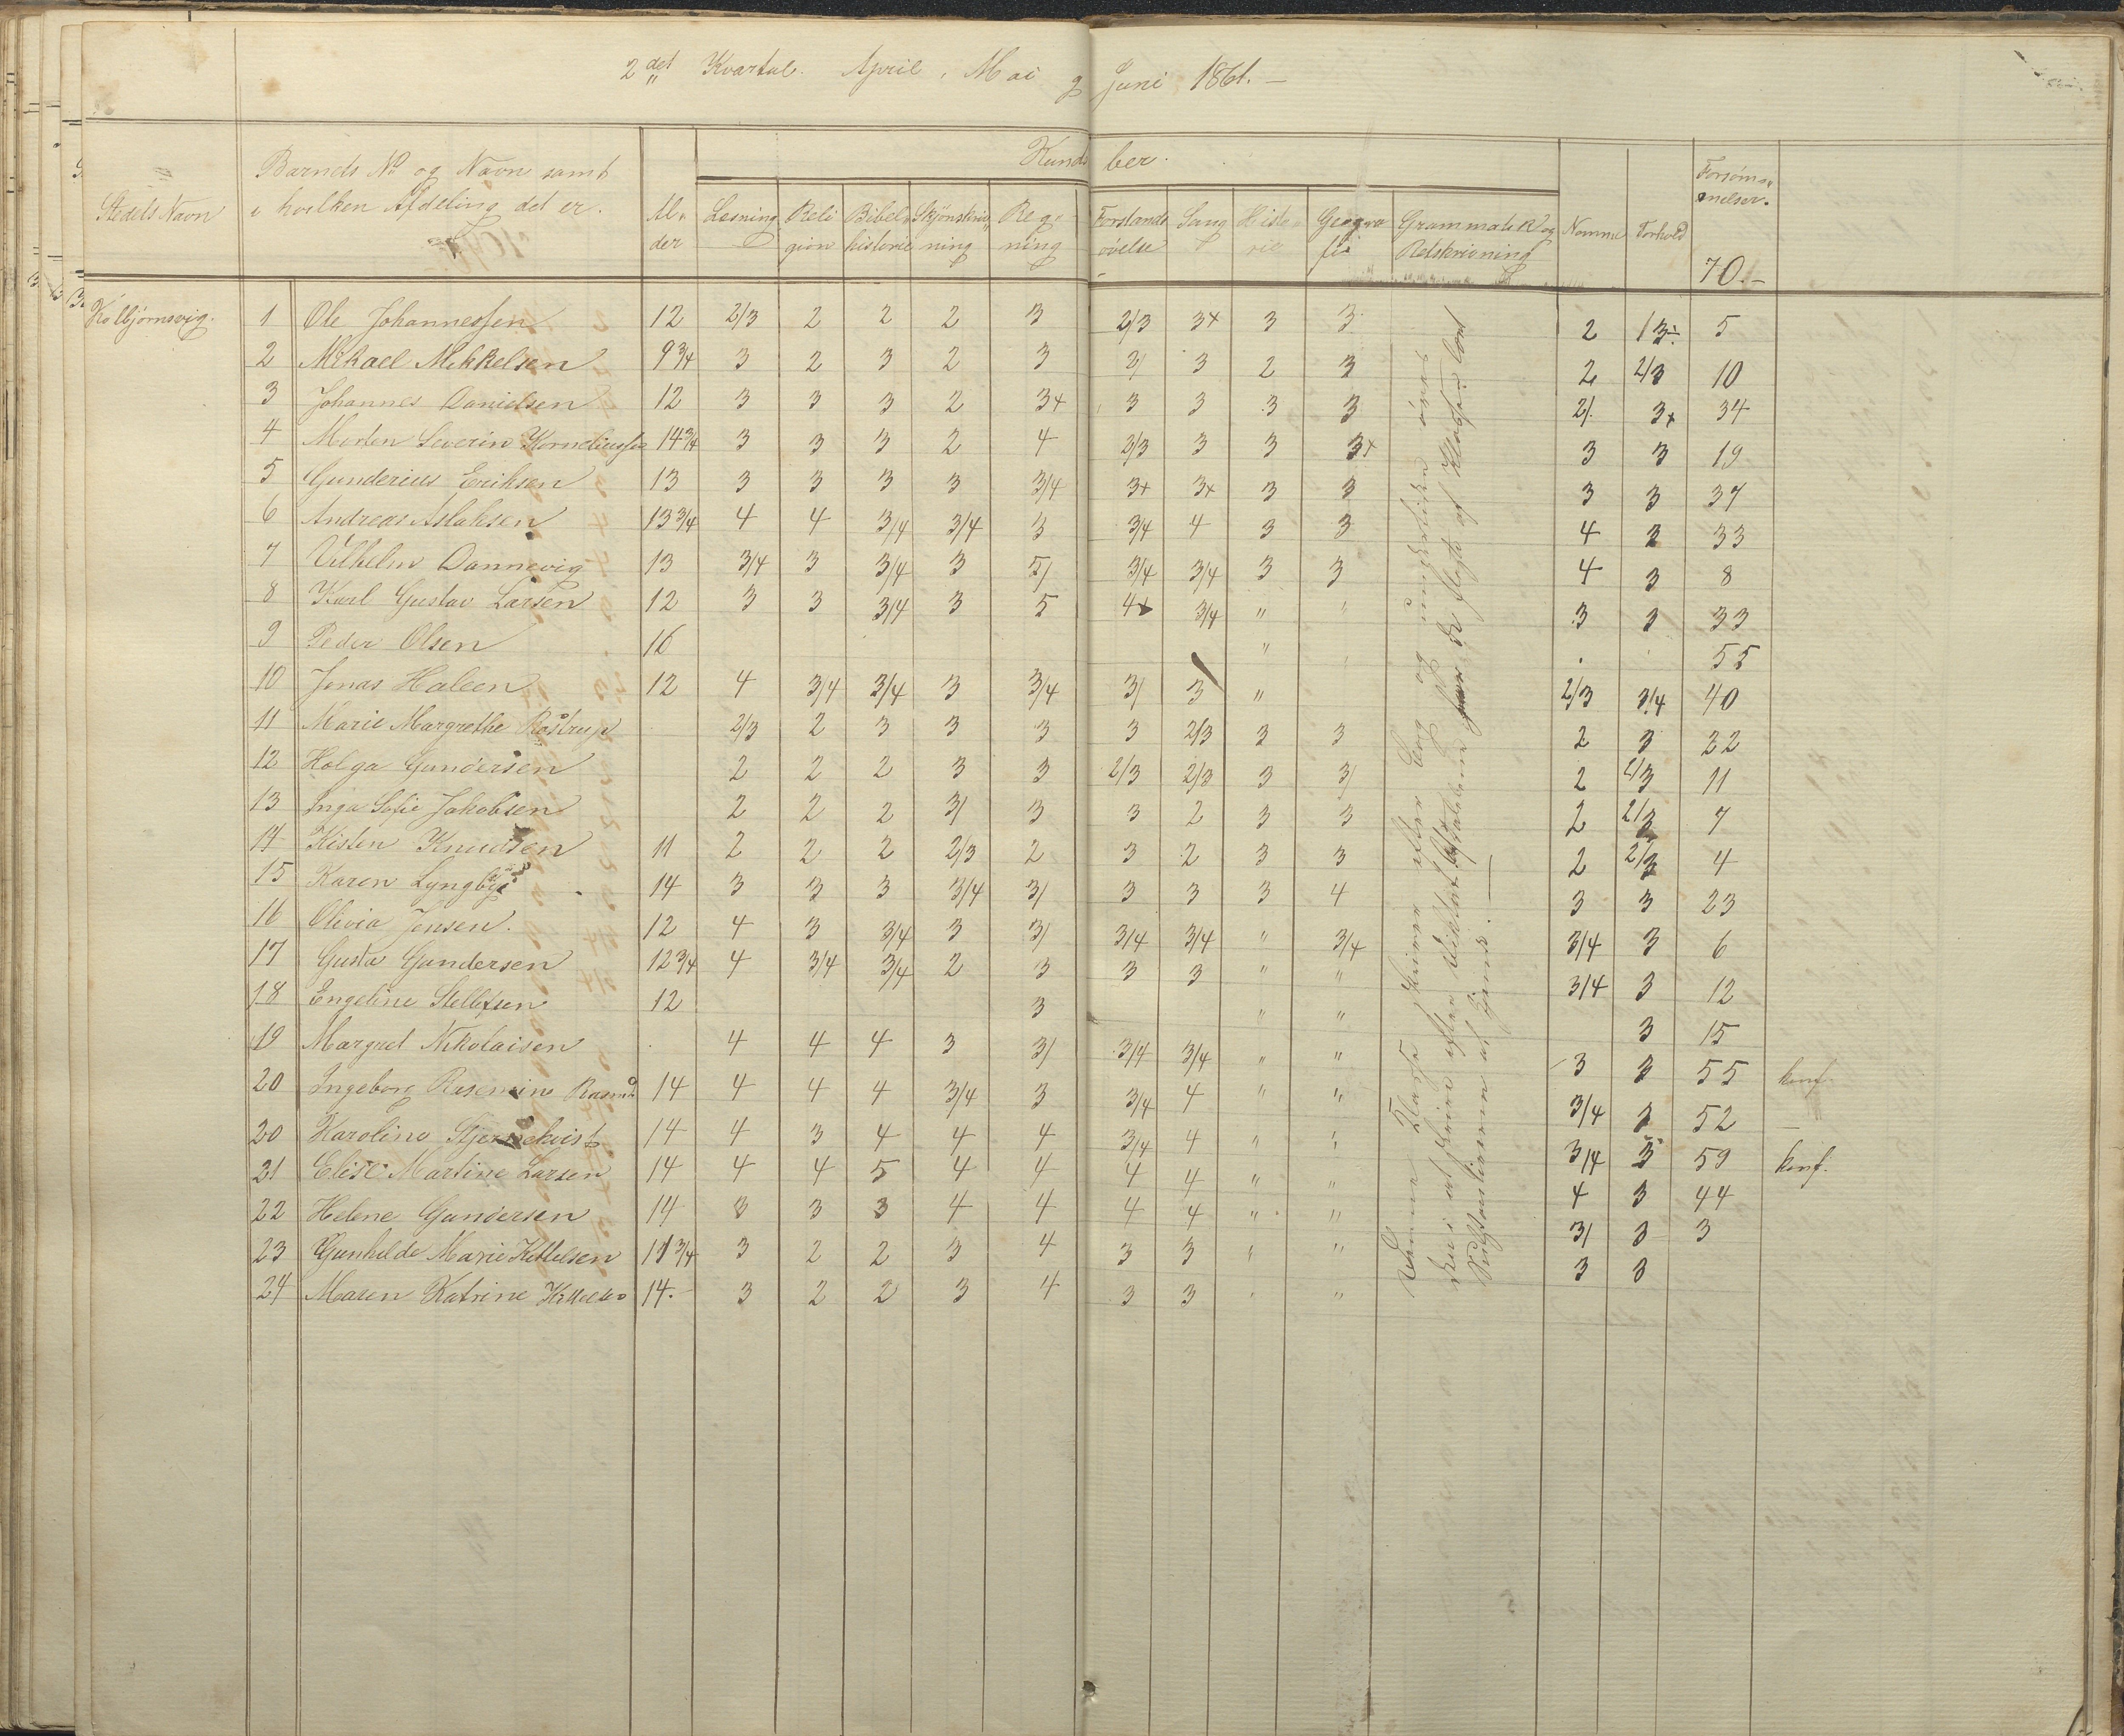 2det Kvartal. April, Mai og Juni 1861. –
Stedets Navn
Barnets No og Navn samt
i hvilken Afdeling det er.
Al-
der
Kundskaber.
Læsning
Reli
gion
Bibel-
historie
Skjönskriv
ning
Reg-
ning
Forstands
övelse
Sang
Histo-
rie
Geogra
fi
Grammatik og
Retskrivning
Nemme
Forhold
Forsöm-
melser.
70. –
Kolbjørnsvig. 1 Ole Johannessen 12 2/3 2 2 2 3 2/3 3+ 3 3 2 13÷ 5
2 Mikael Mikkelsen 9¾ 3 2 3 2 3 2/ 3 2 3 2 2/3 10
3 Johannes Danielsen 12 3 3 3 2 3+ 3 3 3 3 2/. 3+ 34
4 Morten Severin Korneliussen 14¾ 3 3 3 2 4 2/3 3 3 3+ 3 3 19
5 Gunderius Eriksen 13 3 3 3 3 3/4 3+ 3+ 3 3 3 3 37
6 Andreas Aslaksen 13¾ 4 4 3/4 3/4 3 3/4 4 3 3 4 3 33
7 Vilhelm Dannevig 13 3/4 3 3/4 3 5/ 3/4 3/4 3 3 4 3 8
8 Karl Gustav Larsen 12 3 3 3/4 3 5 4+ 3/4 " " 3 3 33
9 Peder Olsen 16 " 55
10 Jonas Haleen 12 4 3/4 3/4 3 3/4 3/ 3 " 2/3 3/4 40
11 Marie Margrethe Råstrup 2/3 2 3 3 3 3 2/3 3 3 2 3 22
12 Holga Gundersen 2 2 2 3 3 2/3 2/3 3 3/ 2 2/3 11
13 Inga Sofie Jakobsen 2 2 2 3/ 3 3 2 3 3 2 2/3 7
14 Kisten Knudsen 11 2 2 2 2/3 2 3 2 3 3 2 2/3 4
15 Karen Lyngby 14 3 3 3 3/4 3/ 3 3 3 4 3 3 23
16 Olivia Jensen. 12 4 3 3/4 3 3/ 3/4 3/4 " 3/4 3/4 3 6
17 Gusta Gundersen 12¾ 4 3/4 3/4 2 3 3 3 " " 3/4 3 12
18 Engeline Stellefsen 12 3 " " 3 15
19 Margret Nikolaisen 4 4 4 3 3/ 3/4 3/4 " " 3 3 55 konf.
20 Ingeborg Rasmine 14 4 4 4 3/4 3 3/4 4 " " 3/4 3 52 –
20 Karoline Stjernekvist 14 4 3 4 4 4 3/4 4 " " 3/4 3 59 konf.
21 Elise Martine Larsen 14 4 4 5 4 4 4 4 " " 4 3 44
22 Helene Gundersen 14 3 3 3 4 4 4 4 " " 3/ 3 3
23 Gunhilde Marie Kittelsen 11¾ 3 2 2 3 4 3 3 " " 3 3
24 Maren Katrine 14. 3 2 2 3 4 3 3 " "
Denne Klasse skriver efter Bog og undertiden övet
sig i at skrive efter Diktat. har de fleste af Klassen lært
Substantiverne at kjende. –